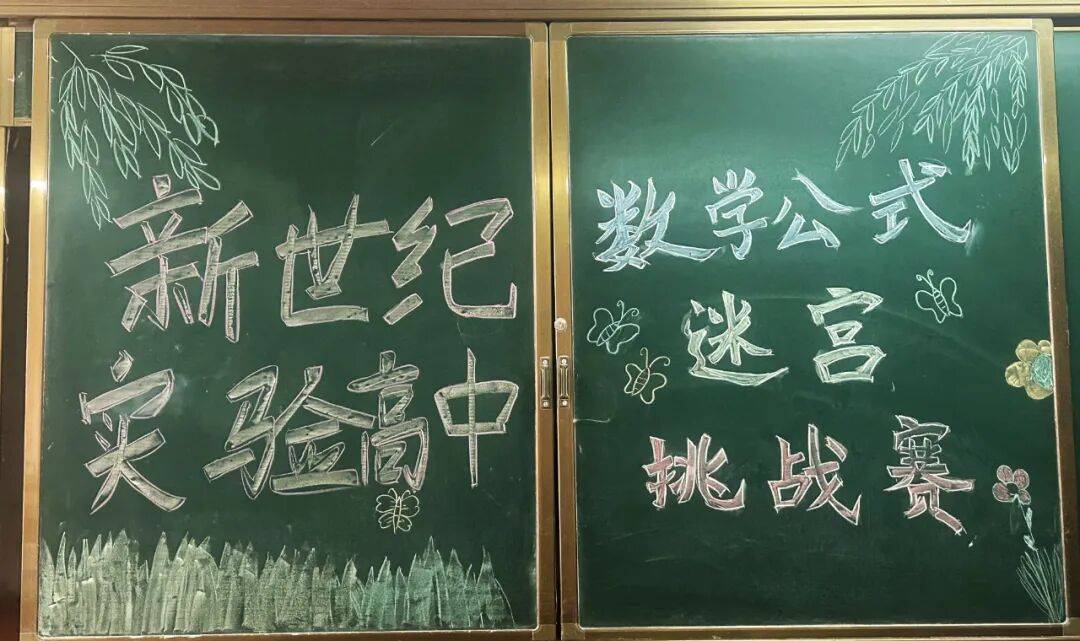 新世纪
实验高中
数学公式
迷宫
挑战赛